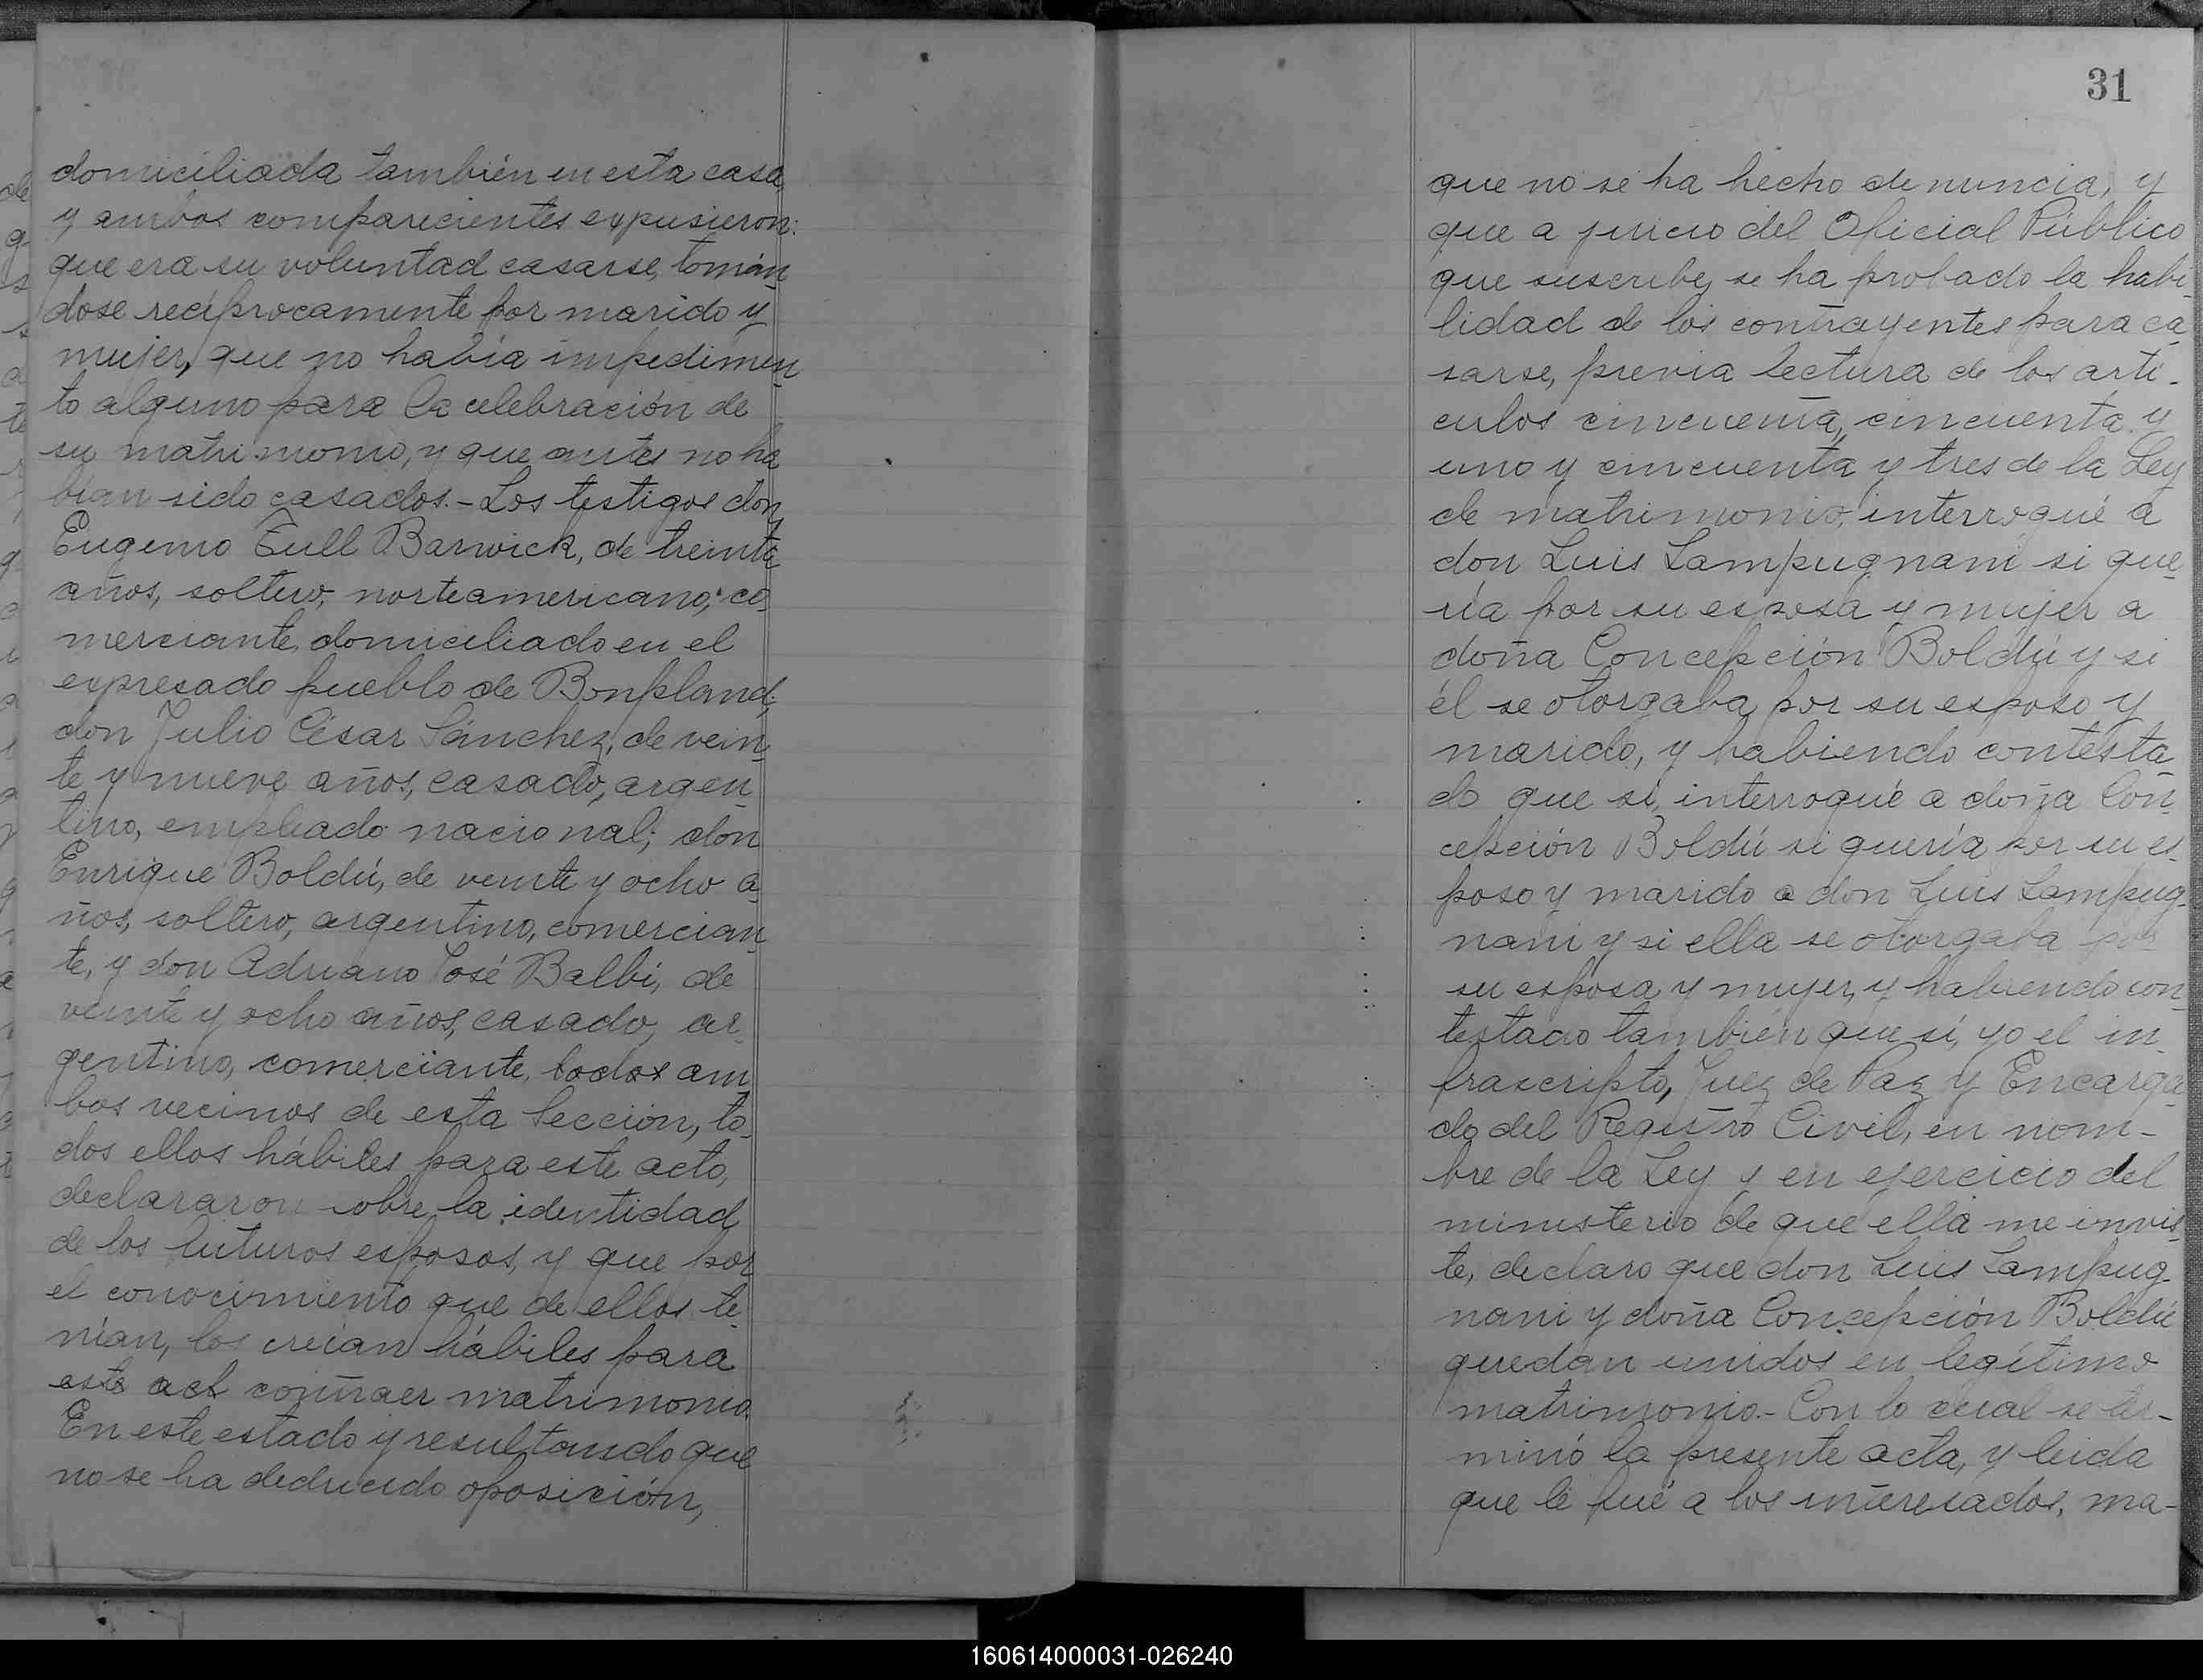 domiciliada también en esta casa,
y ambos comparecientes expusieron:
que era su voluntad casarse, tomán
dose recíprocamente por marido y
mujer, que no había impedimen
to alguno para la celebración de
su matrimonio, y que antes no ha
bían sido casados.- Los testigos don
Eugenio Tull Barwick, de treinta
años, soltero, norteamericano, co
merciante, domiciliado en el
expresado pueblo de Bonpland;
don Julio César Sánchez, de vein
te y nueve años, casado, argen
tino, empleado nacional; don
Enrique Boldú, de veinte y ocho a
ños, soltero, argentino, comercian
te, y don Adriano José Balbi, de
veinte y ocho años, casado, ar
gentino, comerciante, todos am
bos vecinos de esta Sección, to
dos ellos hábiles para este acto,
declararon sobre la identidad
de los futuros esposos, y que por
el conocimiento que de ellos te
nían, los creían hábiles para
este act contraer matrimonio.
En este estado y resultando que
no se ha deducido oposición,
31
que no se ha hecho denuncia, y
que a juicio del Oficial Público
que suscribe, se ha probado la habi
lidad de los contrayentes para ca
sarse, previa lectura de los artí-
culos cincuenta, cincuenta y
uno y cincuenta y tres de la Ley
de matrimonio, interrogué a
don Luis Lampugnani si que
ría por su esposa y mujer a
doña Concepción Boldú y si
él se otorgaba por su esposo y
marido, y habiendo contesta
do que sí, interrogué a doña Con
cepción Boldú si quería por su es
poso y marido a don Luis Lampug-
nani y si ella se otorgaba por
su esposa y mujer, y habiendo con
testado también que sí, yo el in
frascripto, Juez de Paz y Encarga
do del Registro Civil, en nom-
bre de la Ley y en ejercicio del
ministerio de que ella me invis
te, declaro que don Luis Lampug-
nani y doña Concepción Boldú
quedan unidos en legítimo
matrimonio.- Con lo cual se ter-
minó la presente acta, y leida
que le fué a los interesados, ma-
160614000031-026240